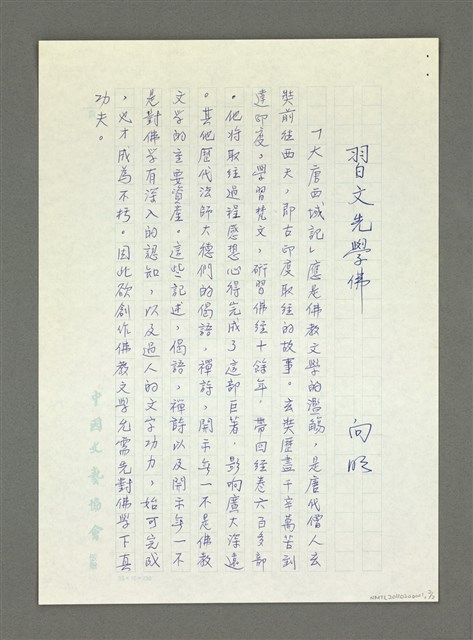 習文先學佛
向明
「大唐西域記」應是佛教文學的濫觴，是唐代僧人玄
奘前往西天，即古印度取經的故事。玄奘歷盡千辛萬苦到
達印度，學習梵文，研習佛經十餘年，帶回經卷六百多部
。他將取經過程感想心得完成了這部巨著，影响廣大深遠
。其他歷代法師大德們的偈語，禪詩，開示無一不是佛教
文學的主要資產。這些記述，偈語，禪詩以及開示無一不
是對佛学有深入的認知，以及過人的文字功力，始可完成
，也才成為不朽。因此欲創作佛教文學尤需先對佛學下真
功夫。
中國文藝協會